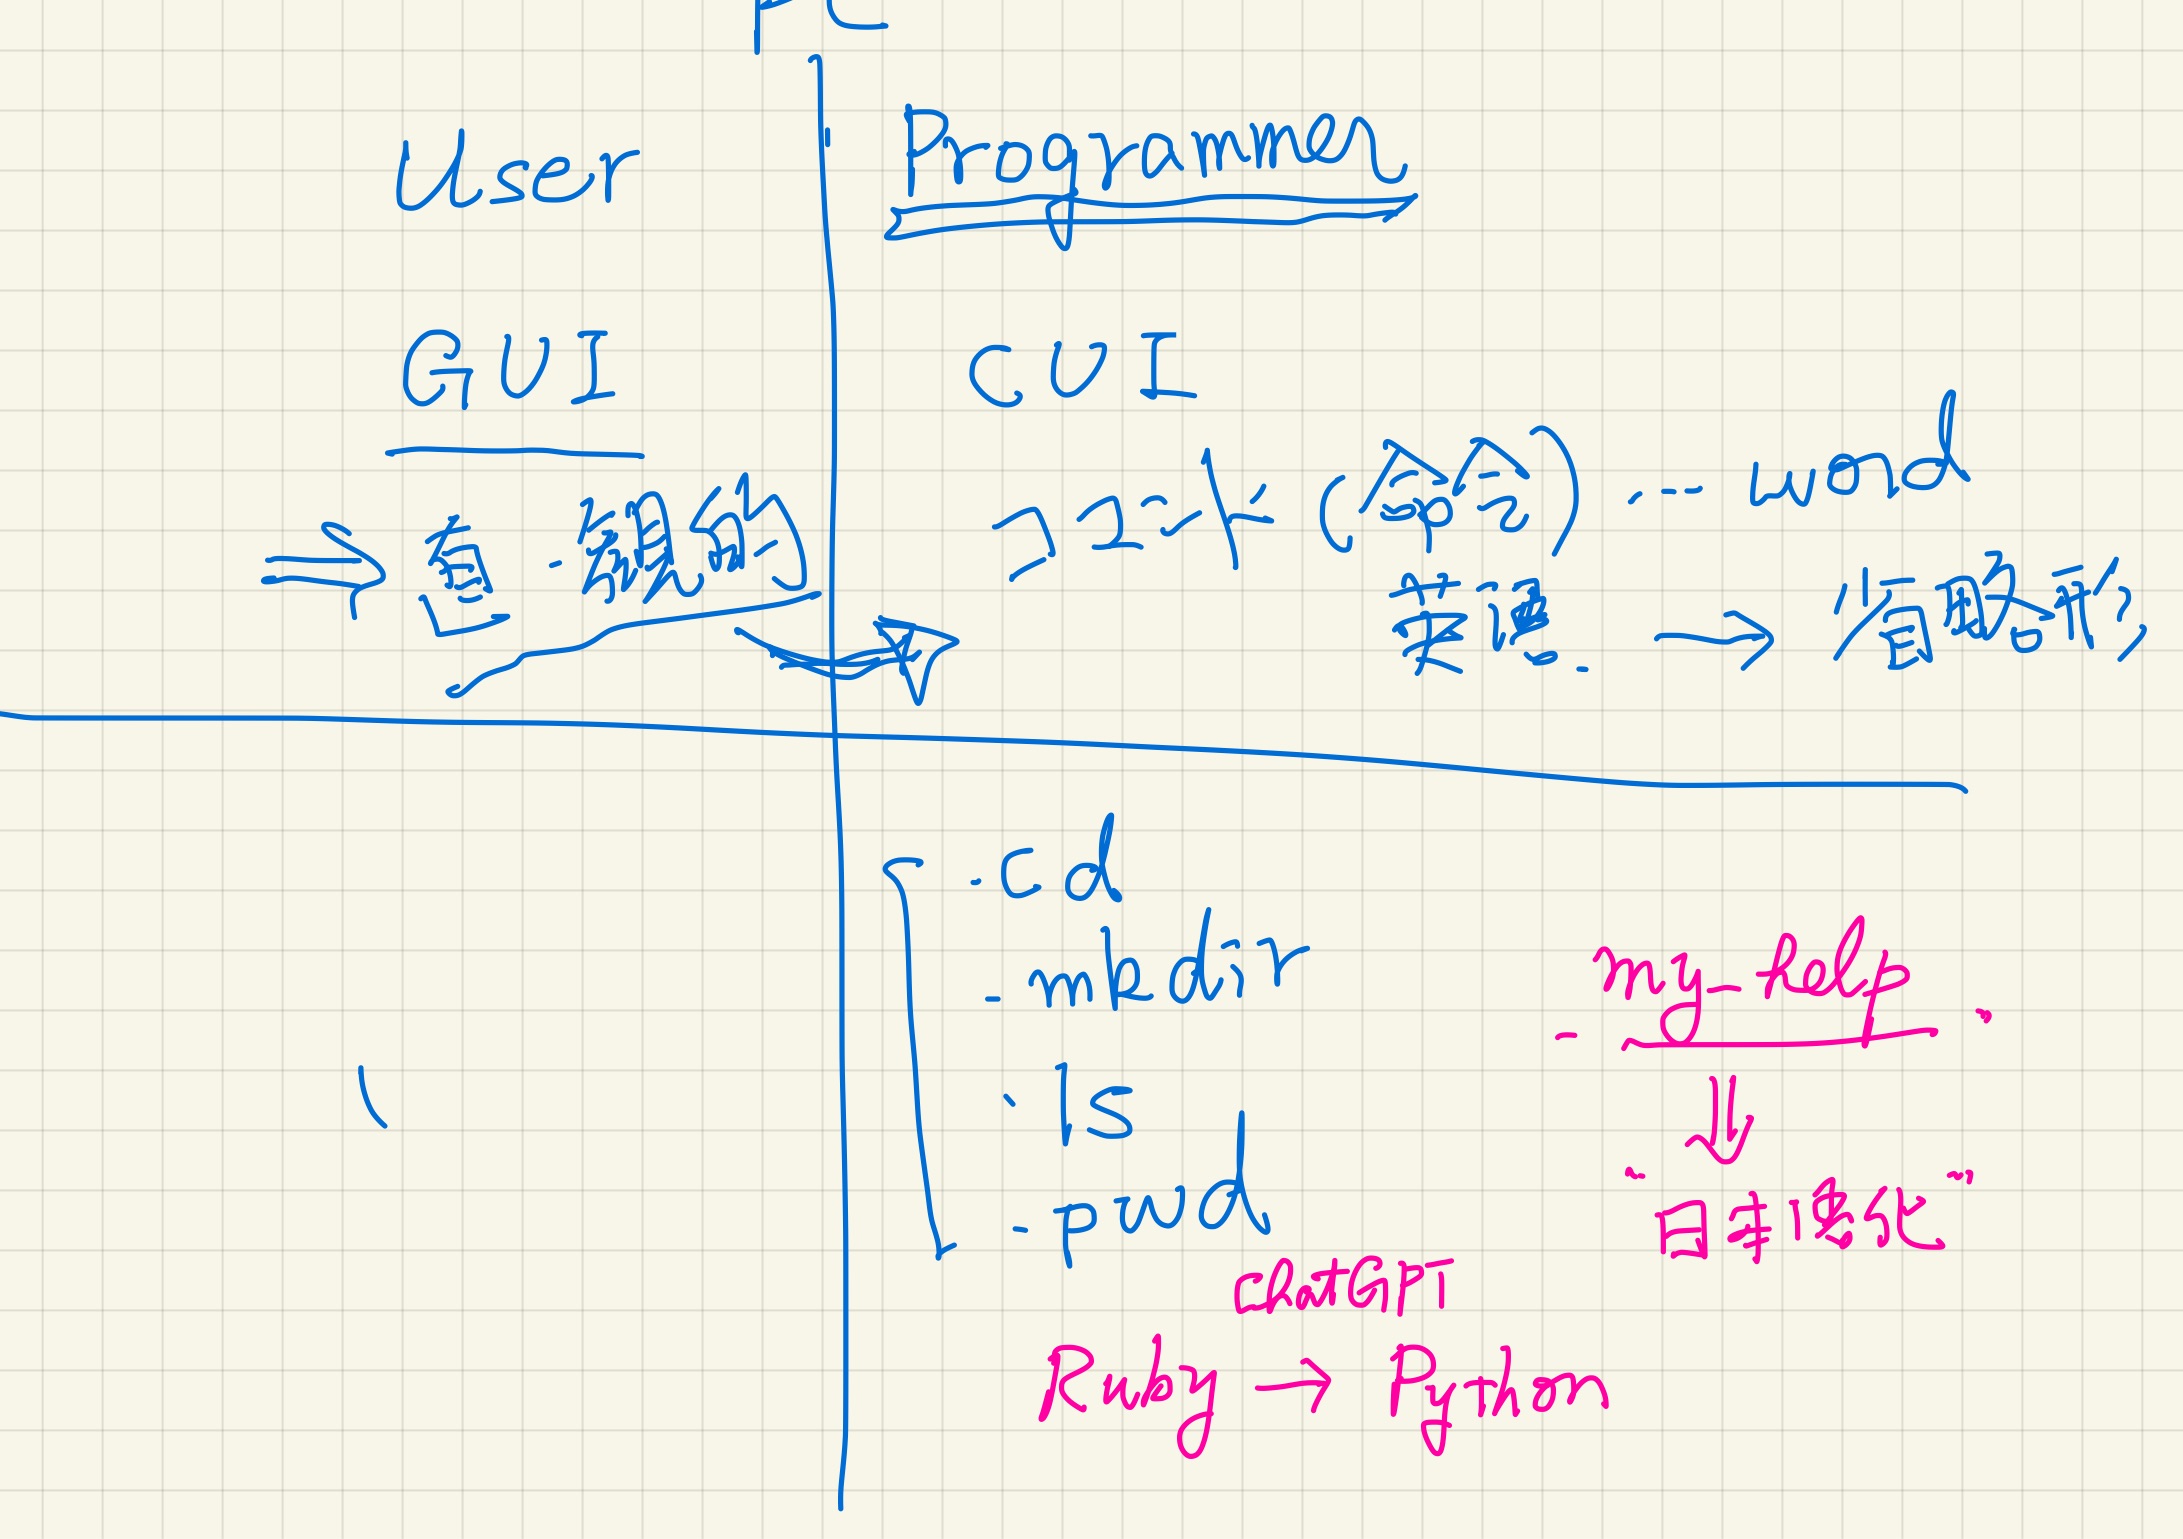 PC
User
Programmer
GUI
CUI
⇒ 直観的
コマンド (命令) --- word
英語 → 省略形
- cd
- mkdir
- ls
- pwd
"my_help"
⇓
"日本語化"
chatGPT
Ruby → Python